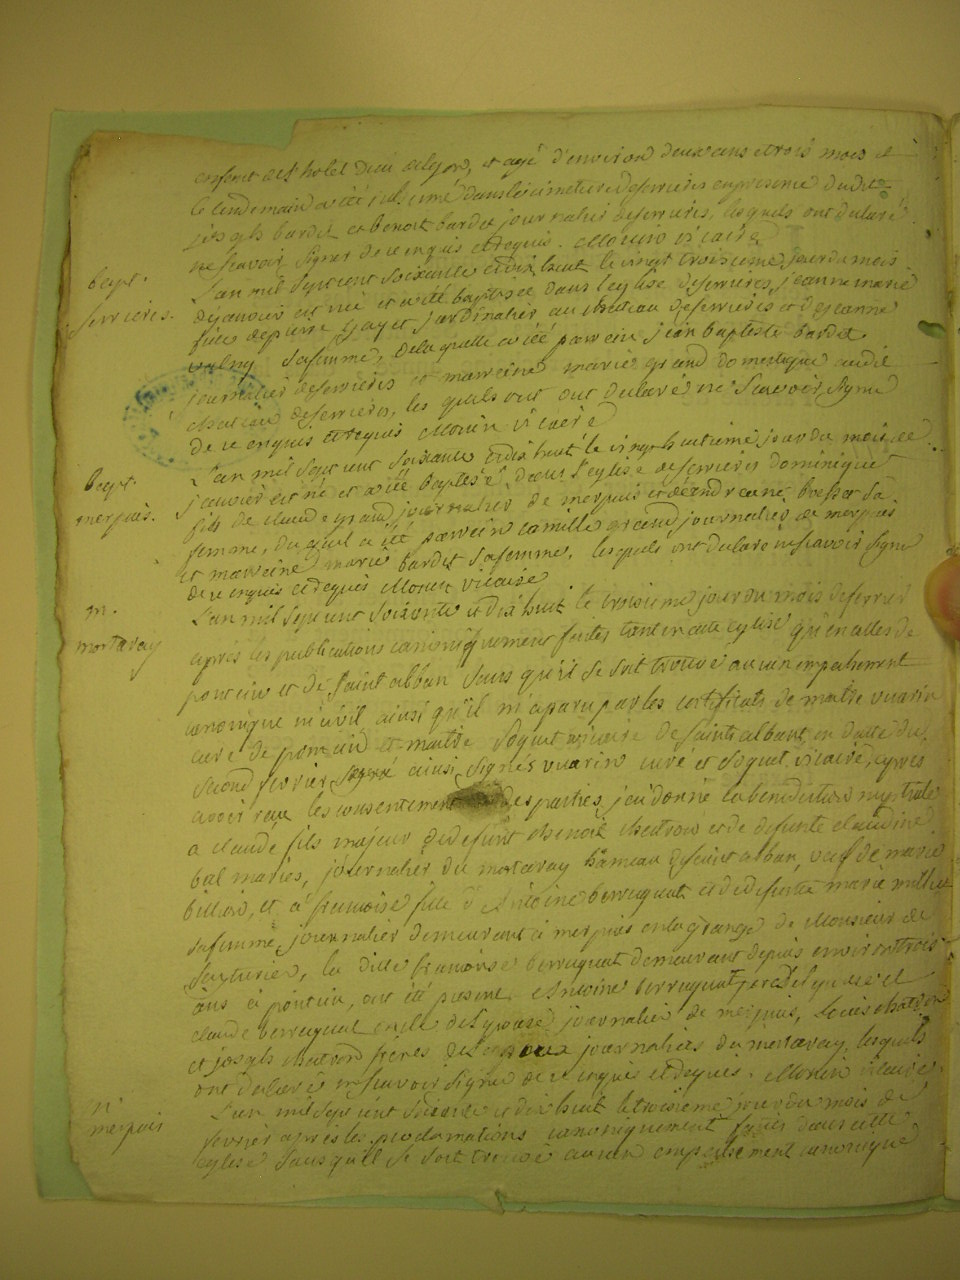 enfent de l'hotel dieu de lyon, et agé d'environ deux ans et trois mois et
le lendemain a été inhumé dans le cimetiere deserrieres en presence dudit
joseph bardet et benoit bardet journalier deserrieres, lesquels ont declaré
ne scavoir signer de ce enquis et requis. Morin vicaire
bapt.
serrieres.
L'an mil sept cent soixante et dix huit le vingt troisieme jour du mois
de janvier est née et a été baptisée dans l'eglise deserrieres jeanne marie
fille de pierre gayet jardinalier au chateau deserrieres et de jeanne
sa femme, de laquelle a été parrein jean baptiste bardet
journalier deserrieres et marreine marie grand domestique audit
chateau deserrieres, les quels ont declaré ne scavoir signer
de ce enquis et requis Morin vicaire
bapt.
merpuis.
L'an mil sept cent soixante et dix huit le vingt huitieme jour du mois de
janvier est né et a été baptisé dans l'eglise deserrieres dominique
fils de claude grand journalier de merpuis et de andreanne sa
femme, du quel a été parrein camille grand journalier de merpuis
et marreine marie bardet sa femme, lesquels ont declaré ne scavoir signer
de ce enquis et requis Morin vicaire
m.
mortaray
L'an mil sept cent soixante et dix huit le troisieme jour du mois de fevrier
apres les publications canoniquement faites tant en cette eglise qu'en celles de
poncin et de saint alban sans qu'il se soit trouvé aucun empechement
canonique ni civil ainsi qu'il m'a paru par les certificats de maitre vuarin
curé de poncin et maitre soquet vicaire de saint alban, en datte du
second fevrier ainsi signés vuarin curé et soquet vicaire, apres
avoir reçu les consentement des parties, j'ai donné la benediction nuptiale
a claude fils majeur de defunt benoit chatron et de defunte claudine
bal mariés, journalier du mortaray hameau de saint alban, veuf de marie
billion, et a francoise fille d'Antoine berruquat et de defunte marie
sa femme, journalier demeurant a merpuis en la grange de Monsieur de
la ditte francoise berruquat demeurant depuis environ trois
ans a poncin, ont été present Antoine berruquat pere de l'epouse et
claude berruquat oncle de l'epouse journalier de merpuis, Louis chatron
et joseph chatron freres de l'epoux journaliers du mortaray, lesquels
ont declaré ne scavoir signer de ce enquis et requis. Morin vicaire.
m.
merpuis
L'an mil sept cent soixante et dix huit le troisieme jour du mois de
fevrier apres les proclamations canoniquement faites dans cette
eglise sans qu'il se soit trouvé aucun empechement canonique